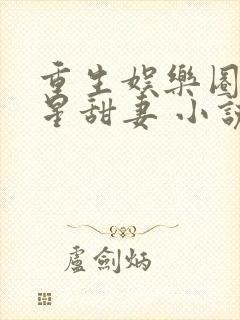 重生娛樂圈
星甜妻 小說
盧劍炳